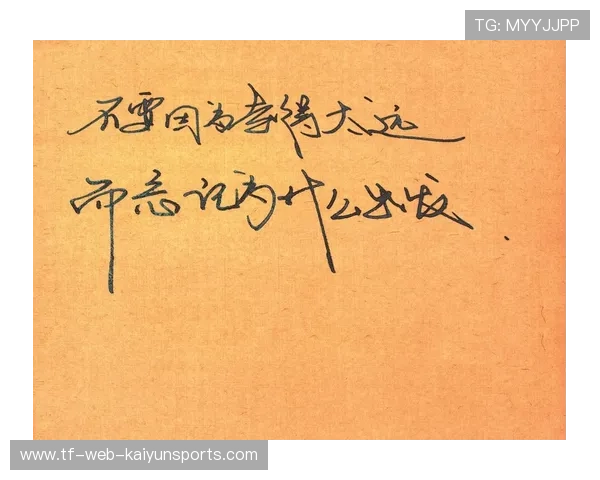 TG: MYYJJPP
不要因为走得太远
而忘记为什么出发.
www.tf-web-kaiyunsports.com